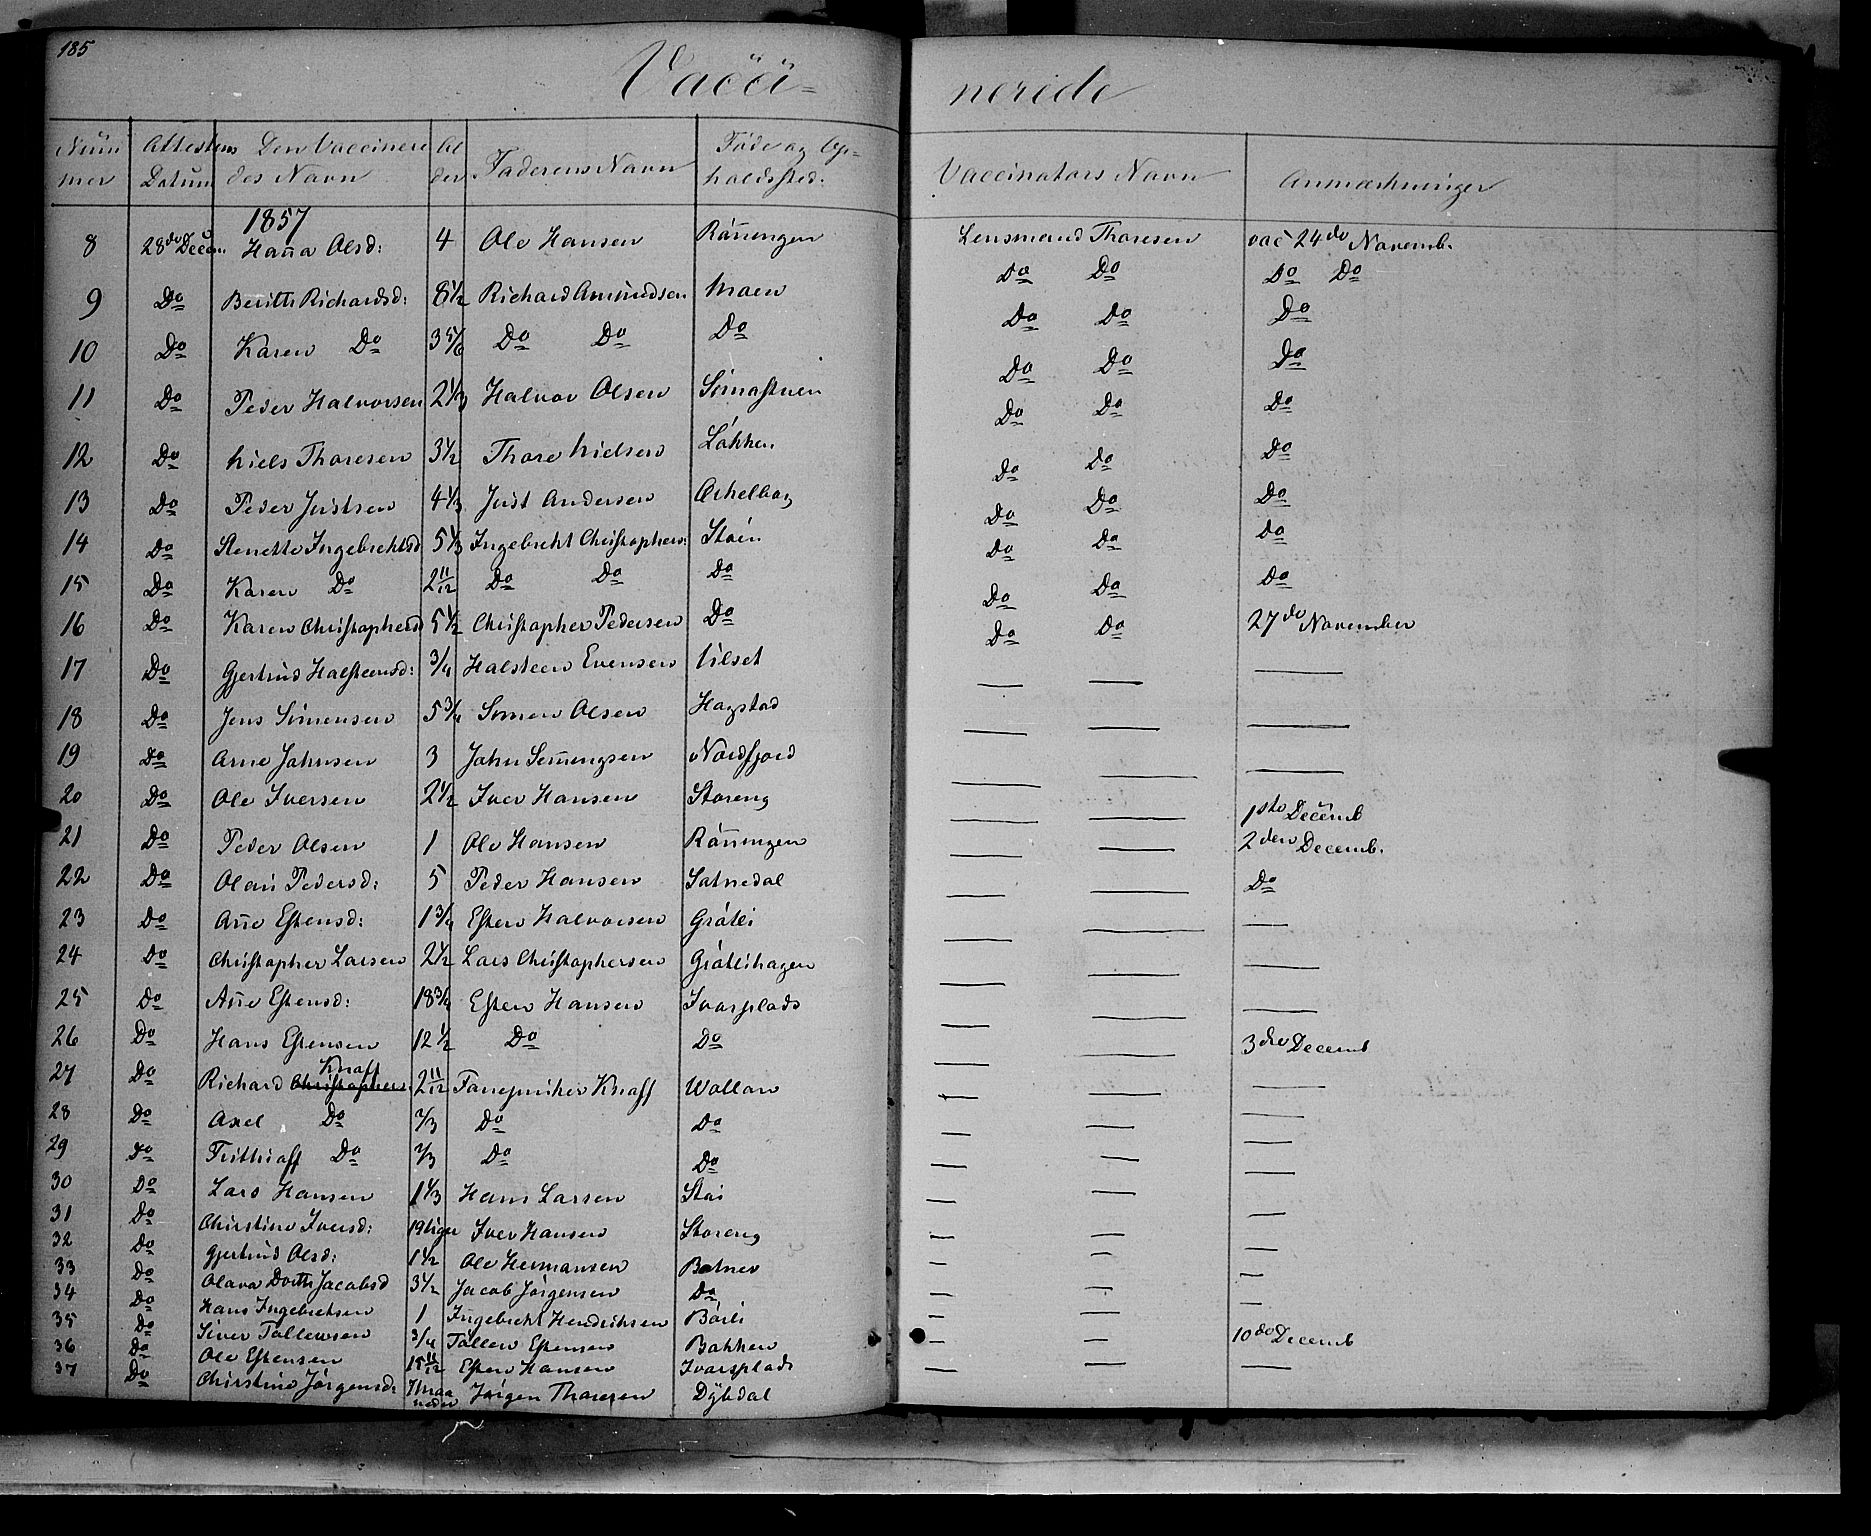 185
Vacci- nerede
Num mer | Attestens Datum | Den Vaccinere des Navn | Al der | Faderens Navn | Føde og Op= holdssted: | Vaccinators Navn | Anmærkninger
1857
8 28de Decem. Hanna Olsd: 4 Ole Hansen Rönningen Lensmand Thoresen vac 24de Novemb.
9 Do Beritte Richardsd: 8 1/2 Richard Amundsen Moen Do Do Do Do
10 Do Karen Do 3 5/6 Do Do Do Do Do Do
11 Do Peder Halvorsen 2 1/3 Halvor Olsen Simastuen Do Do Do
12 Do Niels Thoresen 3 1/2 Thore Nielsen Løkken Do Do Do
13 Do Peder Justsen 4 1/3 Just Andersen Do Do Do
14 Do Stenette Ingebrektsd 5 1/3 Ingebrekt Christophers: Støen Do Do Do
15 Do Karen Do 2 11/12 Do Do Do Do Do Do
16 Do Karen Christophersd 5 1/2 Christopher Pedersen Do Do Do Do
17 Do Gjertrud Halsteensd: 3/4 Halsteen Evensen Vilset Do Do 27de November
18 Do Jens Simensen 5 3/4 Simen Olsen Hagstad — — —
19 Do Arne Johnsen 3 John Semmengsen Nordfjord — — —
20 Do Ole Iversen 2 1/2 Iver Hansen Storeng — — —
21 Do Peder Olsen 1 Ole Hansen Rönningen — — 1ste Decemb
22 Do Olau Pedersd: 5 Peder Hansen Satnedal — — 2den Decemb.
23 Do Anne Estensd: 1 3/4 Esten Halvorsen Grøtli — — Do
24 Do Christopher Larsen 2 1/2 Lars Christophersen Grøtlihagen — — —
25 Do Anne Estensd: 18 3/4 Esten Hansen Ivarsplads — — —
26 Do Hans Estensen 12 1/2 Do Do — — —
27 Do Richard Christophers Knaff 2 11/12 Fanejunker Knaff Wollan — — 3die Decemb
28 Do Axel Do 2/3 Do Do — — —
29 Do Frithiaff Do 2/3 Do Do — — —
30 Do Lars Hansen 1 1/3 Hans Larsen Støi — — —
31 Do Christine Iversd: 19 Iver Hansen Storeng — — —
32 Do Gjertrud Olsd: 1 1/2 Ole Hermansen Botnen — — —
33 Do Olava Dorthe Jacobsd 3 1/2 Jacob Jørgensen Do — — —
34 Do Hans Ingebretsen 1 Ingebrekt Hendriksen Børli — — —
35 Do Siver Tollewsen 3/4 Tollew Estensen Bakken — — —
36 Do Ole Estensen 15 11/12 Esten Hansen Ivarsplads — — 10de Decemb
37 Do Christine Jørgensd: 7 Maa neder Jørgen Thoresen Dybdal — — —